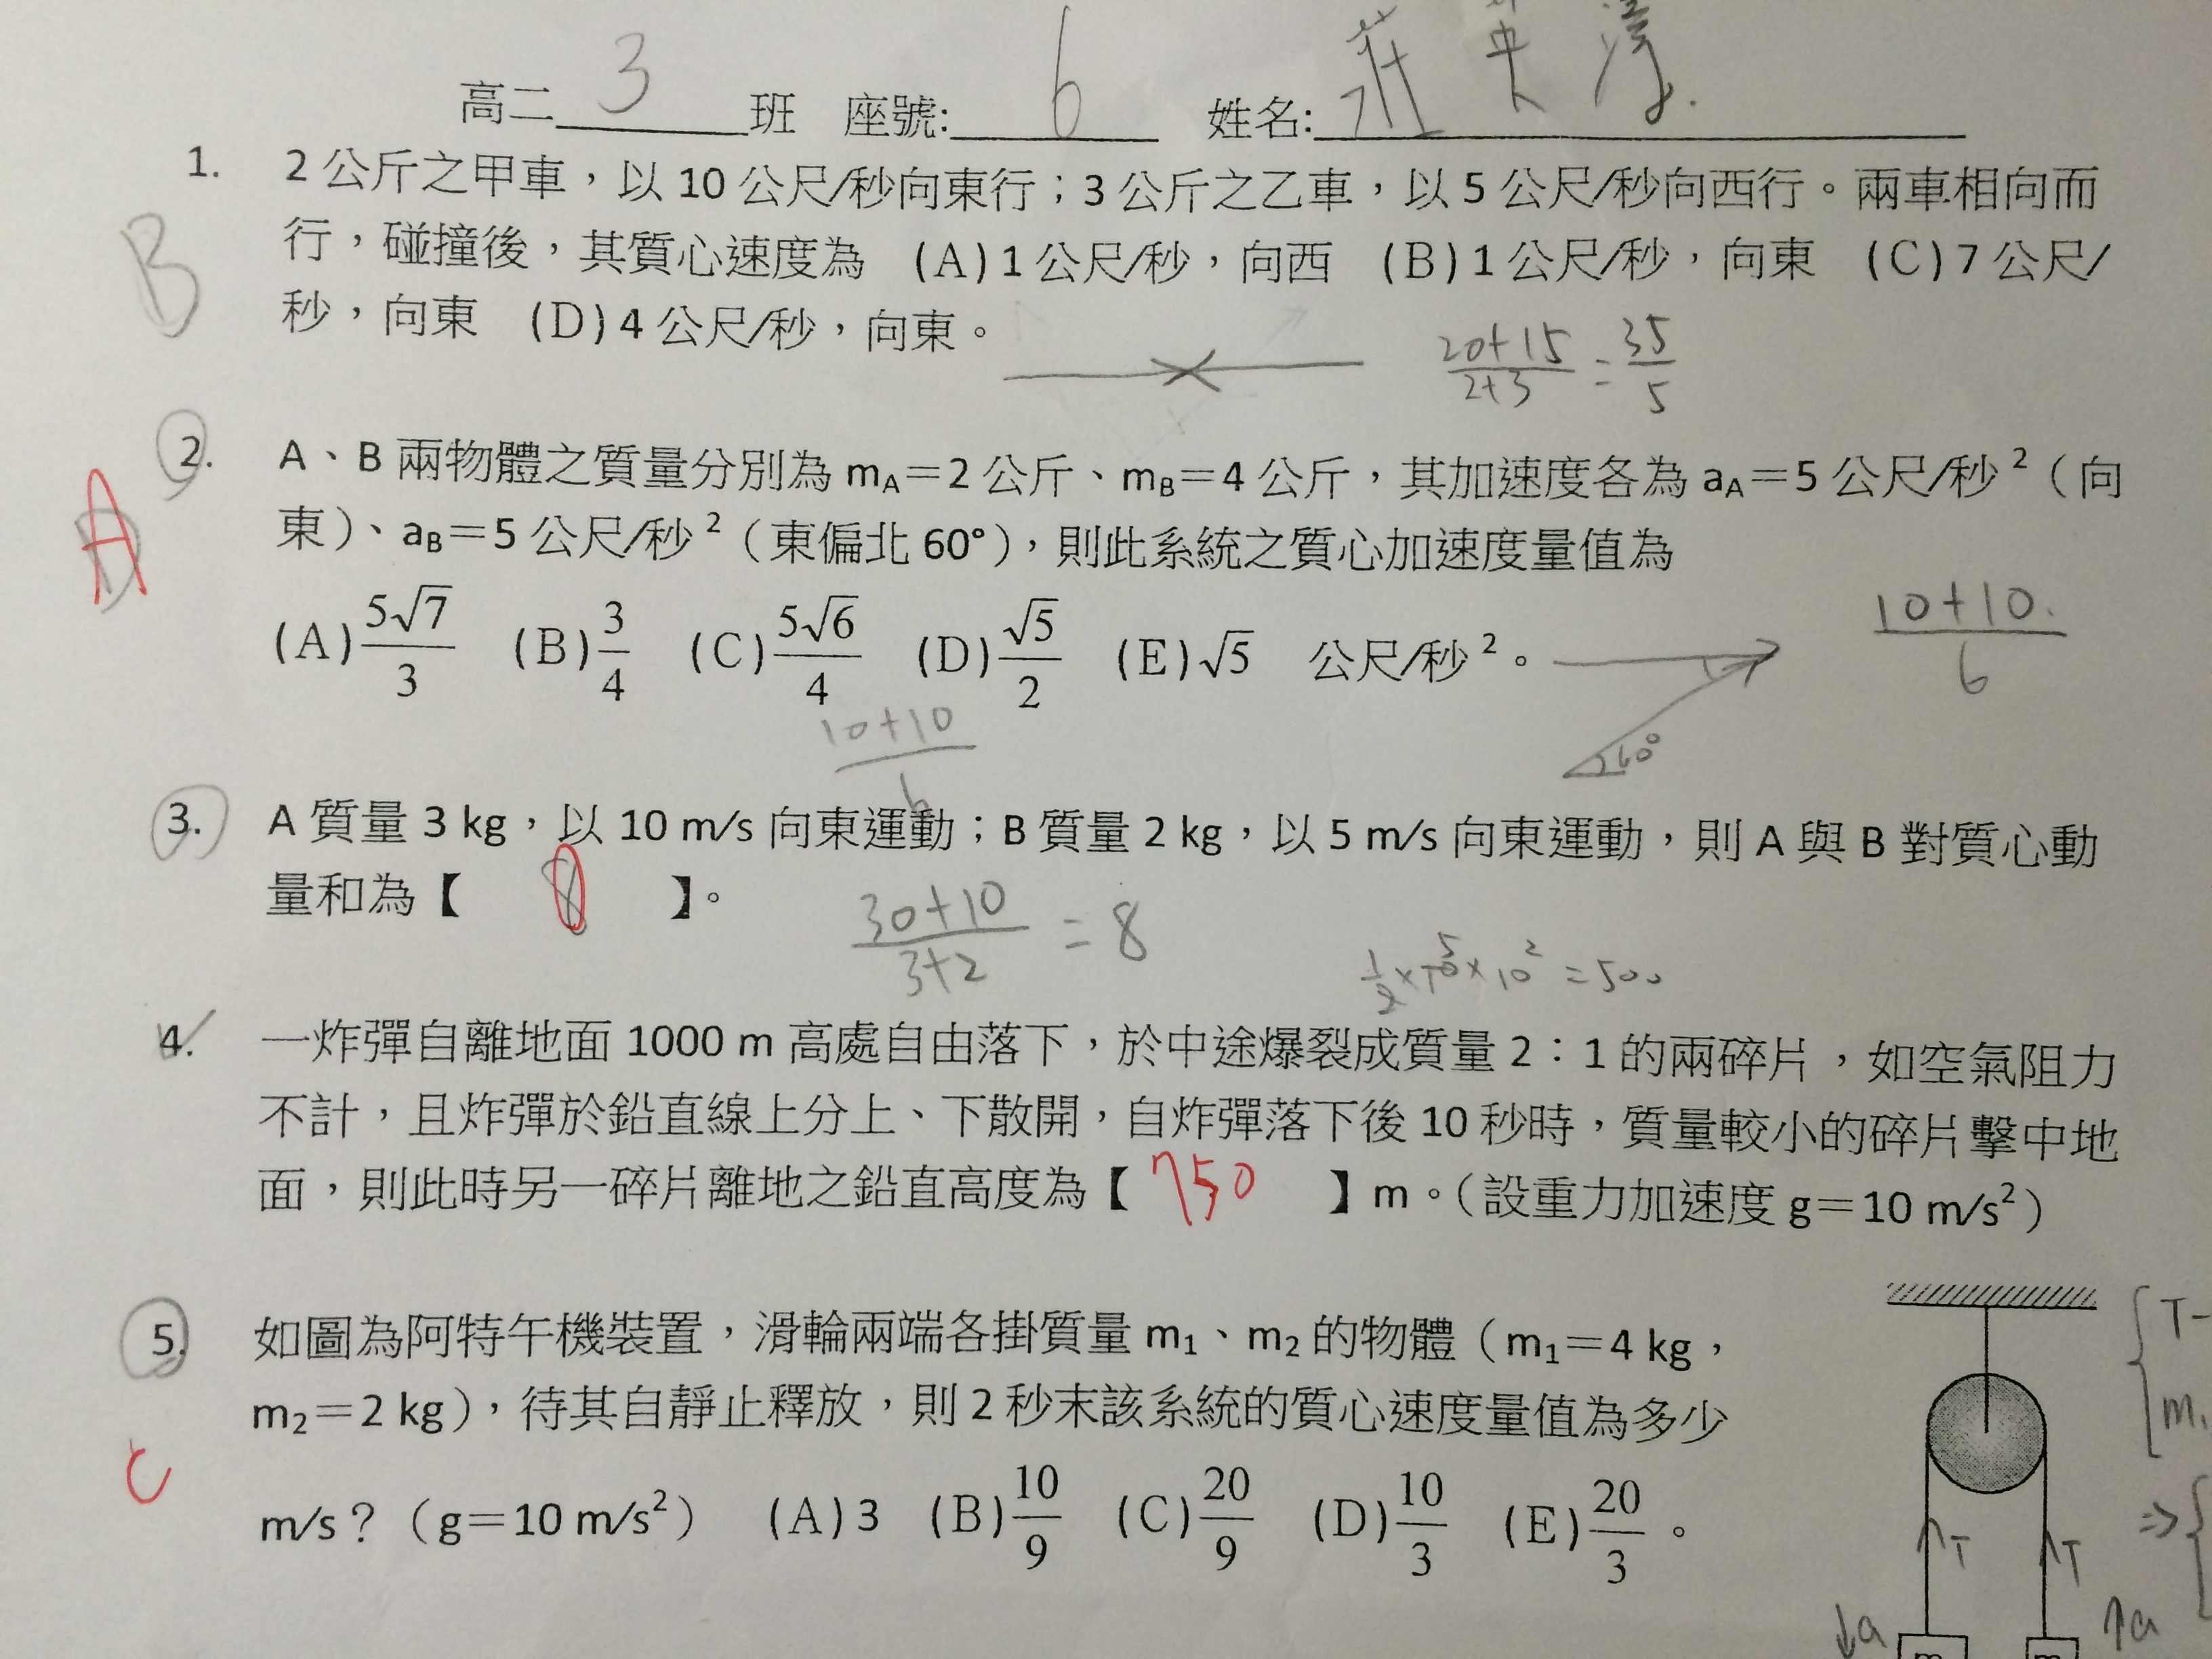 高二 3 班 座號: 6 姓名: 莊
1. 2 公斤之甲車，以 10 公尺/秒向東行；3 公斤之乙車，以 5 公尺/秒向西行。兩車相向而
B 行，碰撞後，其質心速度為 (A) 1 公尺/秒，向西 (B) 1 公尺/秒，向東 (C) 7 公尺/
秒，向東 (D) 4 公尺/秒，向東。
20+15/2+3 = 35/5
2. A、B 兩物體之質量分別為 mA＝2 公斤、mB＝4 公斤，其加速度各為 aA＝5 公尺/秒²（向
A 東）、aB＝5 公尺/秒²（東偏北 60°），則此系統之質心加速度量值為
(A) 5√7/3 (B) 3/4 (C) 5√6/4 (D) √5/2 (E) √5 公尺/秒²。
10+10/6
60°
10+10/6
3. A 質量 3 kg，以 10 m/s 向東運動；B 質量 2 kg，以 5 m/s 向東運動，則 A 與 B 對質心動
量和為【 0 】。
30+10/3+2 = 8
=500
4. 一炸彈自離地面 1000 m 高處自由落下，於中途爆裂成質量 2：1 的兩碎片，如空氣阻力
不計，且炸彈於鉛直線上分上、下散開，自炸彈落下後 10 秒時，質量較小的碎片擊中地
面，則此時另一碎片離地之鉛直高度為【 750 】m。（設重力加速度 g＝10 m/s²）
5. 如圖為阿特午機裝置，滑輪兩端各掛質量 m₁、m₂ 的物體（m₁＝4 kg，
m₂＝2 kg），待其自靜止釋放，則 2 秒末該系統的質心速度量值為多少
C m/s？（g＝10 m/s²） (A) 3 (B) 10/9 (C) 20/9 (D) 10/3 (E) 20/3。
T-
m₁
⇒
T T
↓a ↑a